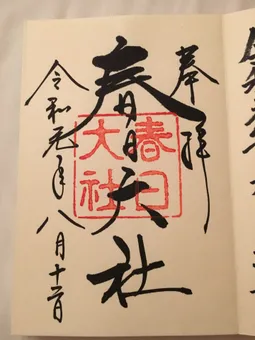 奉拝
春日大社
春日
大社
令和元年八月